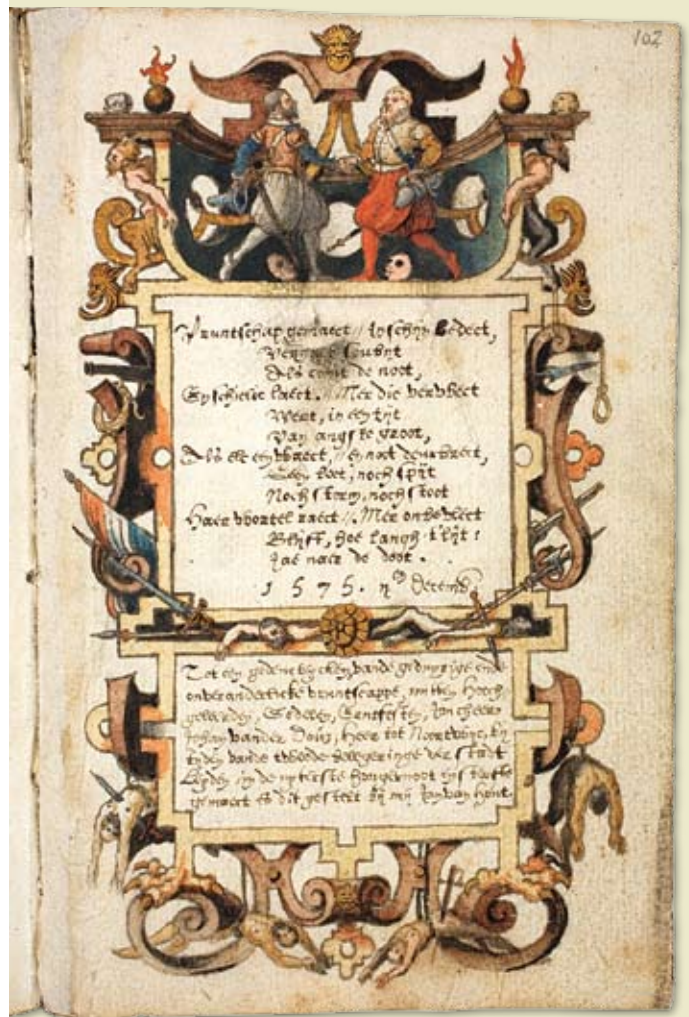 102
Vruntschap gemaect // In schijn bedect,
Vergaet subijt
Als comt de noot,
En schielic laect. // Mer die verwect
Wert, in een tijt
Van angste groot,
Als elc een waect, // en noot deurbreect,
Geen leet, noch spijt
Noch storm, noch stoot
Haer wortel raect //. Mer onbevlect
Blijft, hoe langh 't lijt:
Jae naer de doot.
1575. Decemb.
Tot een gedencteycken vande gedurige ende
onveranderlicke vruntscappe, mitten Hooch
geleerden, Edelen, Erntfesten, Joncheer
Johan vander Does, Heer tot Noortwijc, bij
tijden vande tweede belegeringe der stadt
Leyden in de uyterste hongernoot
gemaect es dit gestelt bij mij Jan van Hout